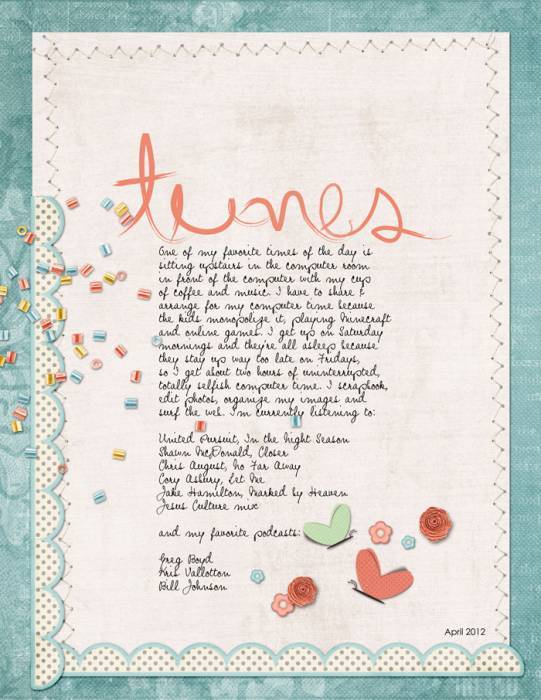 tunes
One of my favorite times of the day is
sitting upstairs in the computer room
in front of the computer with my cup
of coffee and music. I have to share &
arrange for my computer time because
the kids monopolize it, playing Minecraft
and online games. I get up on Saturday
mornings and they're all asleep because
they stay up way too late on Fridays,
so I get about two hours of uninterrupted,
totally selfish computer time. I scrapbook,
edit photos, organize my images and
surf the web. I'm currently listening to:
United Pursuit, In the Night Season
Shawn McDonald, Closer
Chris August, No Far Away
Cory Asbury, Let Me
Jake Hamilton, Marked by Heaven
Jesus Culture mix
and my favorite podcasts:
Greg Boyd
Kris Vallotton
Bill Johnson
April 2012